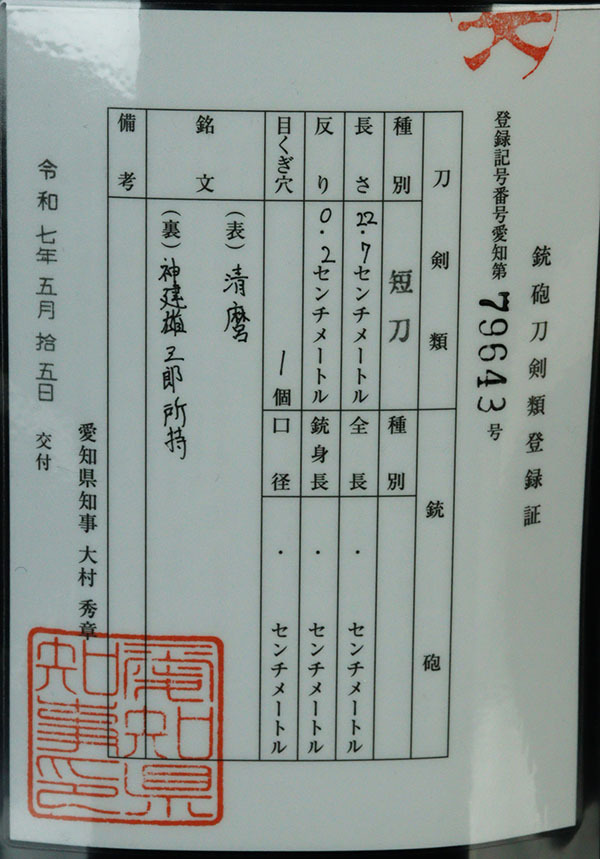 銃砲刀剣類登録証
登録記号番号愛知第 79643 号
刀剣類
種別 短刀
長さ 22.7センチメートル
反り 0.2センチメートル
目くぎ穴 1個
銘文
(表) 清麿
(裏) 神建雄三郎所持
備考
銃砲
種別
全長 ・ センチメートル
銃身長 ・ センチメートル
口径 ・ センチメートル
令和七年五月拾五日 交付
愛知県知事 大村秀章
愛知県
知事印